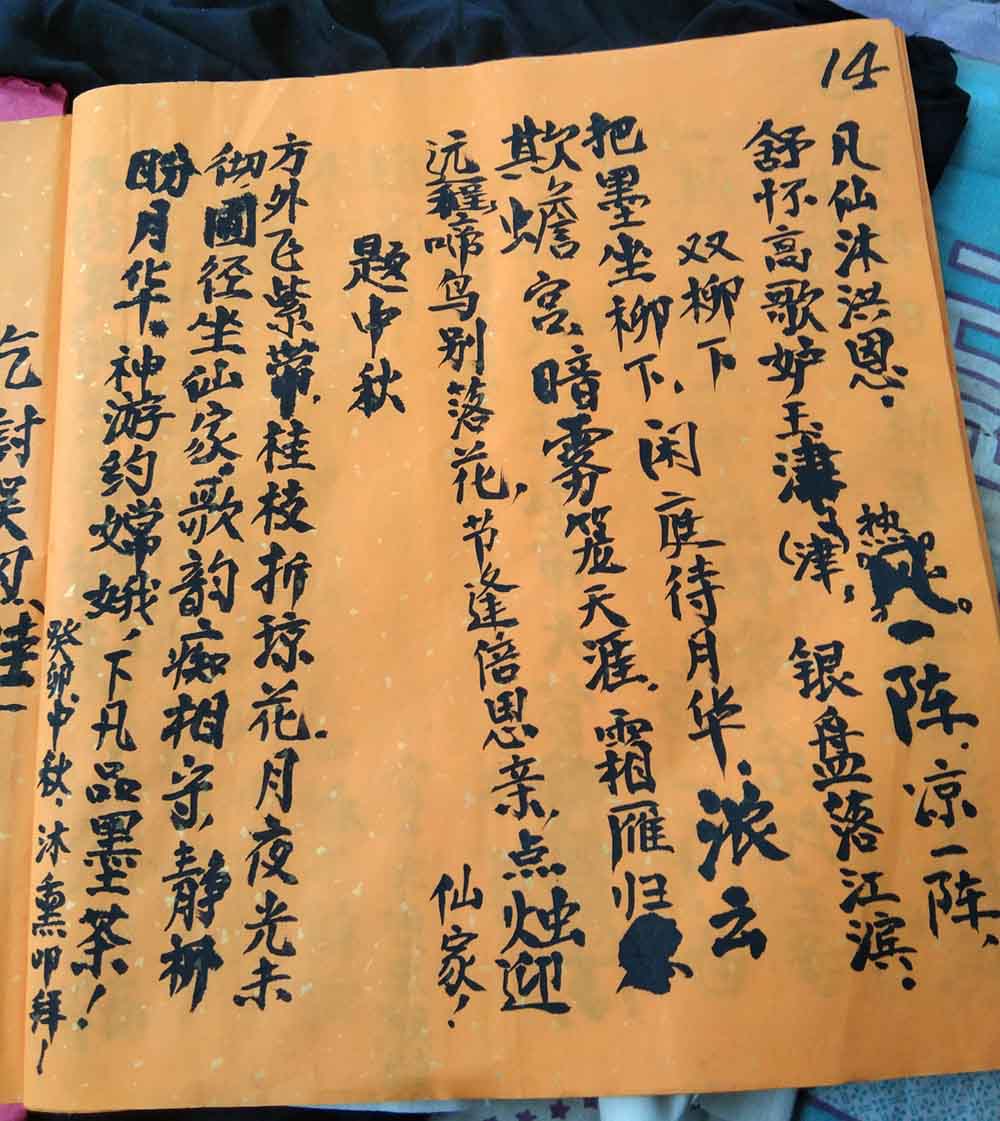 14
凡仙沐洪恩,热。一阵.凉一阵,
舒怀高歌妒玉津(津,银盘落江滨.
双柳下
把墨坐柳下,闲庭待月华.浓云
欺蟾宫,暗雾笼天涯.霜雁归
远程啼鸟别落花,节逢倍思亲,点烛迎
仙家!
题中秋
方外飞紫带,桂枝折琼花.月夜光未
彻,圃径坐仙家,歌韵痴相守,静柳
盼月华。神游约嫦娥,下凡品墨茶!
癸卯.中秋.沐熏叩拜!
乞討